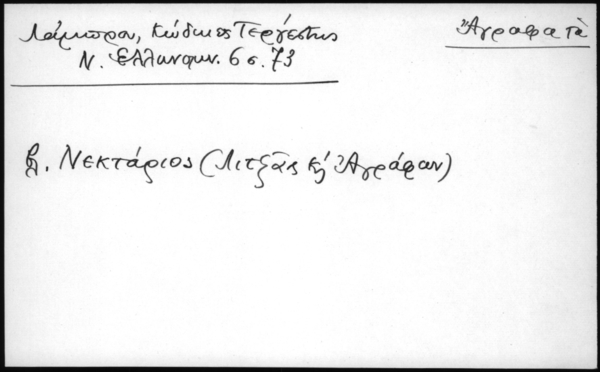 Λάμπρου, Κώδικες Τεργέστης
Ν. Ἑλληνομν. 6 σ. 73
Ἄγραφα τὰ
βλ. Νεκτάριος (Λιτζᾶς κ̀ Ἀγράφων)